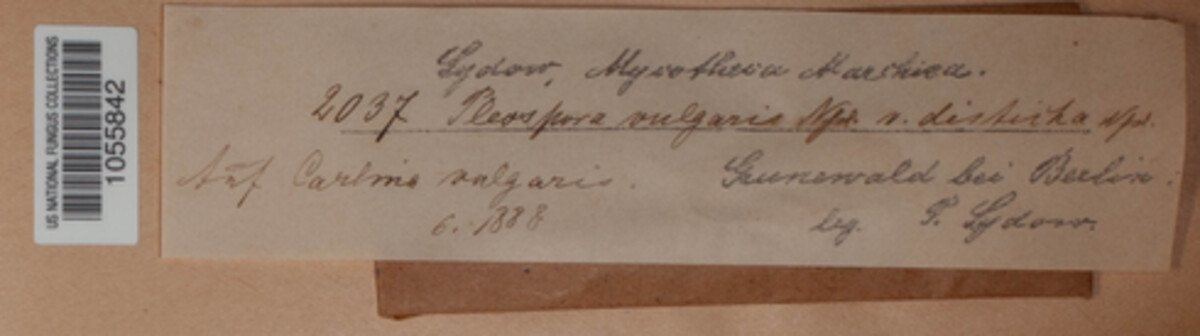 US NATIONAL FUNGUS COLLECTIONS
1055842
Sydow, Mycotheca Marchica.
2037 Pleospora vulgaris Npl. v. disticha Npl.
Auf Carlina vulgaris. Grunewald bei Berlin.
6. 1888 leg. P. Sydow.